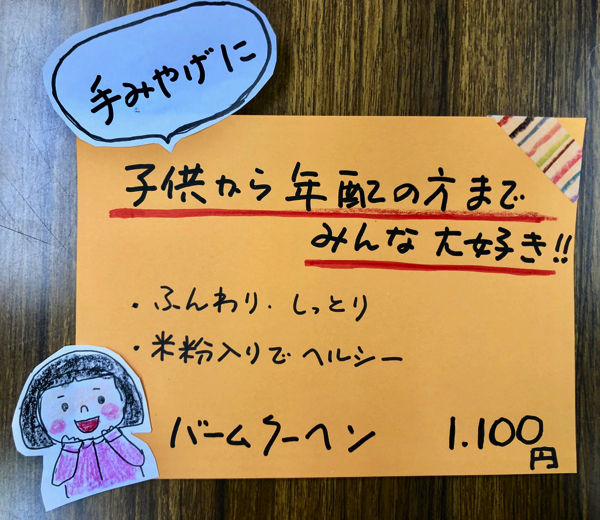 手みやげに
子供から年配の方まで
みんな大好き!!
・ふんわり・しっとり
・米粉入りでヘルシー
バームクーヘン 1.100円